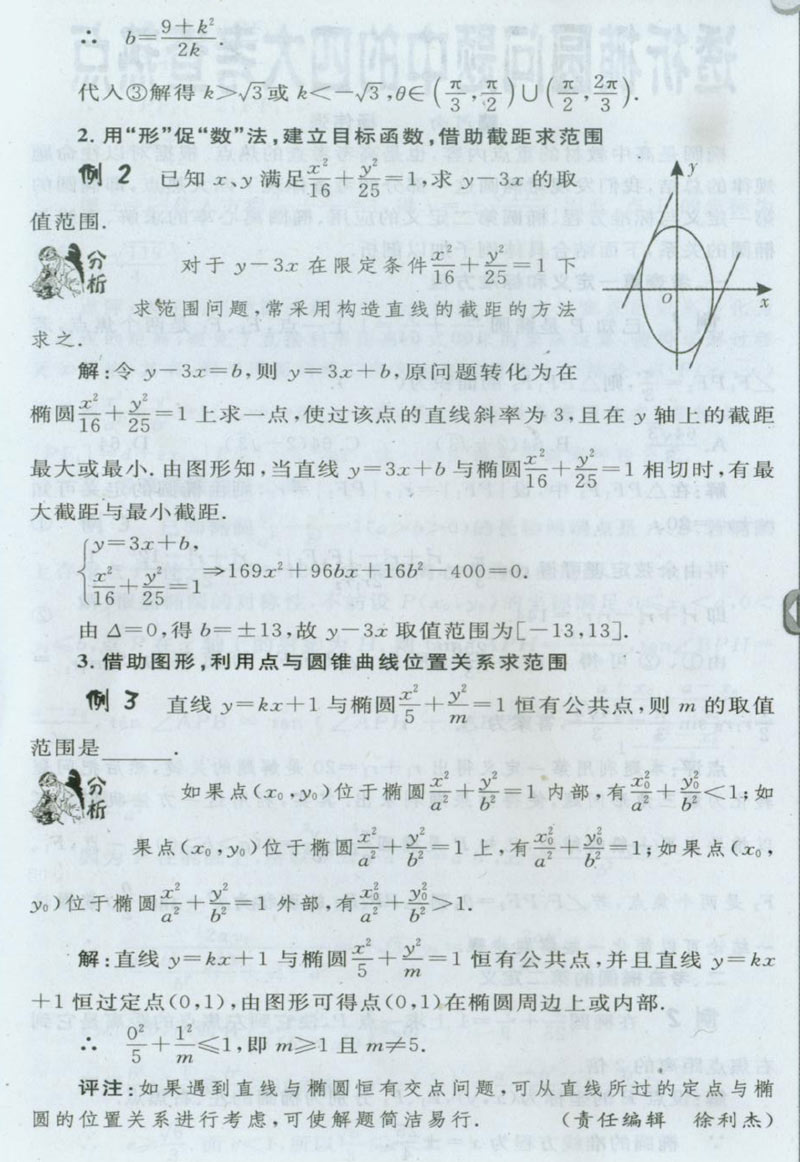 ∴ b=\frac{9+k²}{2k}.
代入③解得 k>√3或 k<-√3,θ∈(\frac{π}{3},\frac{π}{2})∪(\frac{π}{2},\frac{2π}{3}).
2. 用“形”促“数”法,建立目标函数,借助截距求范围
例 2 已知 x、y 满足\frac{x²}{16}+\frac{y²}{25}=1,求 y-3x 的取
值范围.
y
O
x
分析
对于 y-3x 在限定条件\frac{x²}{16}+\frac{y²}{25}=1 下
求范围问题,常采用构造直线的截距的方法
求之.
解:令 y-3x=b,则 y=3x+b,原问题转化为在
椭圆\frac{x²}{16}+\frac{y²}{25}=1 上求一点,使过该点的直线斜率为 3,且在 y 轴上的截距
最大或最小.由图形知,当直线 y=3x+b 与椭圆\frac{x²}{16}+\frac{y²}{25}=1 相切时,有最
大截距与最小截距.
{ y=3x+b,
\frac{x²}{16}+\frac{y²}{25}=1 ⇒169x²+96bx+16b²-400=0.
由 Δ=0,得 b=±13,故 y-3x 取值范围为[-13,13].
3. 借助图形,利用点与圆锥曲线位置关系求范围
例 3 直线 y=kx+1 与椭圆\frac{x²}{5}+\frac{y²}{m}=1 恒有公共点,则 m 的取值
范围是______.
分析
如果点(x₀,y₀)位于椭圆\frac{x²}{a²}+\frac{y²}{b²}=1 内部,有\frac{x₀²}{a²}+\frac{y₀²}{b²}<1;如
果点(x₀,y₀)位于椭圆\frac{x²}{a²}+\frac{y²}{b²}=1 上,有\frac{x₀²}{a²}+\frac{y₀²}{b²}=1;如果点(x₀,
y₀)位于椭圆\frac{x²}{a²}+\frac{y²}{b²}=1 外部,有\frac{x₀²}{a²}+\frac{y₀²}{b²}>1.
解:直线 y=kx+1 与椭圆\frac{x²}{5}+\frac{y²}{m}=1 恒有公共点,并且直线 y=kx
+1 恒过定点(0,1),由图形可得点(0,1)在椭圆周边上或内部.
∴ \frac{0²}{5}+\frac{1²}{m}≤1,即 m≥1 且 m≠5.
评注:如果遇到直线与椭圆恒有交点问题,可从直线所过的定点与椭
圆的位置关系进行考虑,可使解题简洁易行. (责任编辑 徐利杰)